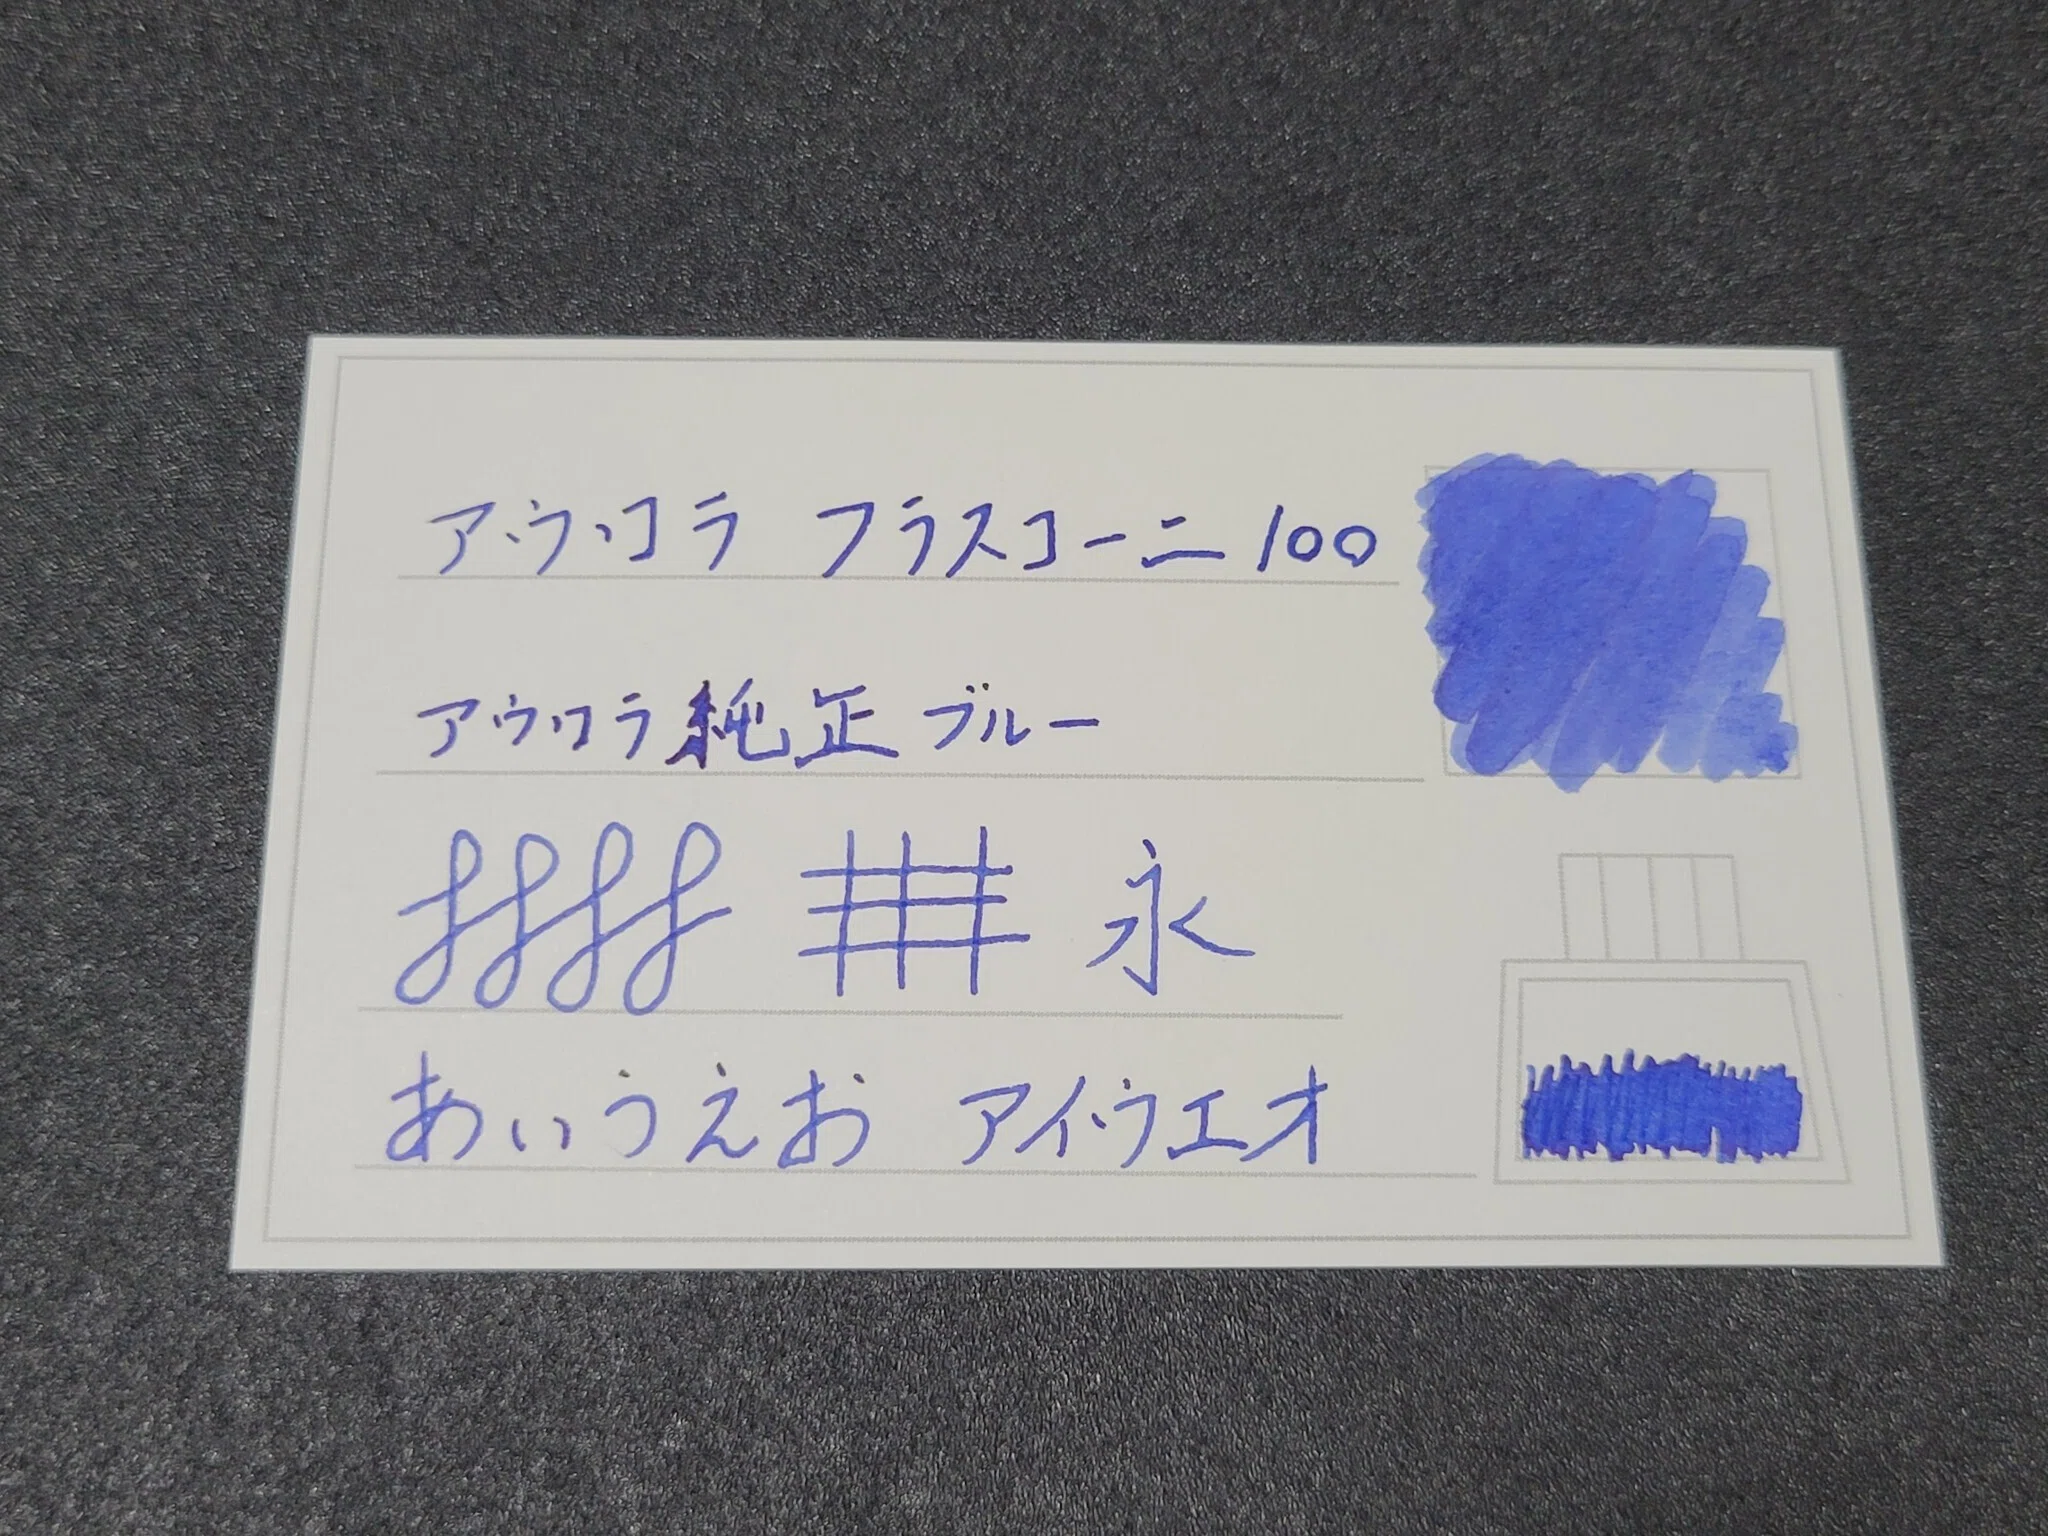 アウロラ フラスコーニ 100
アウロラ純正ブルー
永
あいうえお アイウエオ